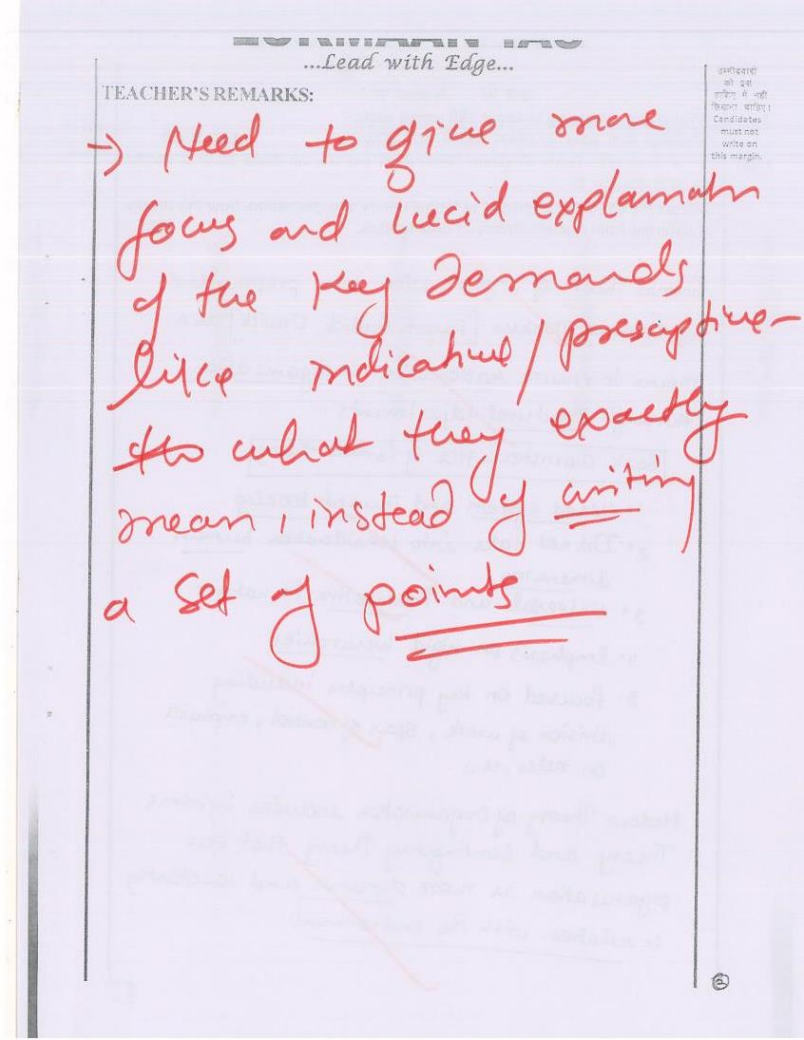 LUKMAAN IAS
...Lead with Edge...
TEACHER'S REMARKS:
उम्मीदवारों
को इस
हाशिए में नहीं
लिखना चाहिए।
Candidates
must not
write on
this margin.
→ Need to give more
focus and lucid explanation
of the key demands
like indicative/prescriptive-
what they exactly
mean, instead of writing
a set of points
2